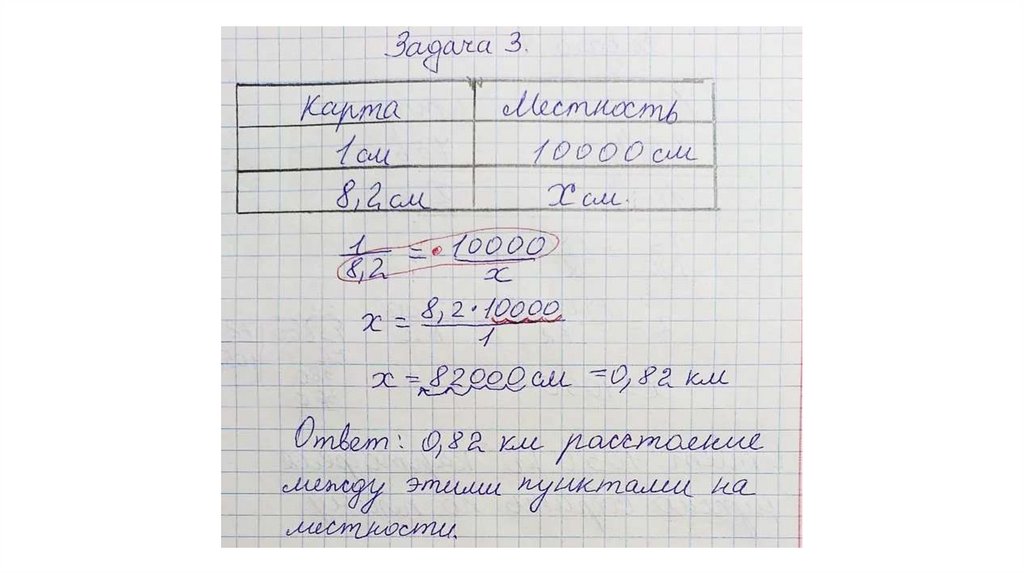 Задача 3.
Карта Местность
1 см 10000 см
8,2 см X см.
1/8,2 = 10000/x
x = 8,2 · 10000/1
x = 82000 см = 0,82 км
Ответ: 0,82 км расстоение
между этими пунктами на
местности.